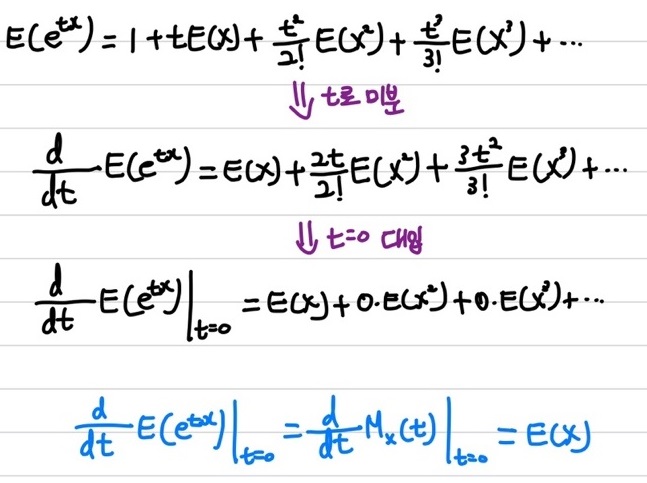 E(e^{tx}) = 1 + tE(x) + \frac{t^2}{2!}E(x^2) + \frac{t^3}{3!}E(x^3) + ...
⇓ t로 미분
\frac{d}{dt}E(e^{tx}) = E(x) + \frac{2t}{2!}E(x^2) + \frac{3t^2}{3!}E(x^3) + ...
⇓ t=0 대입
\frac{d}{dt}E(e^{tx})|_{t=0} = E(x) + 0·E(x^2) + 0·E(x^3) + ...
\frac{d}{dt}E(e^{tx})|_{t=0} = \frac{d}{dt}M_x(t)|_{t=0} = E(x)